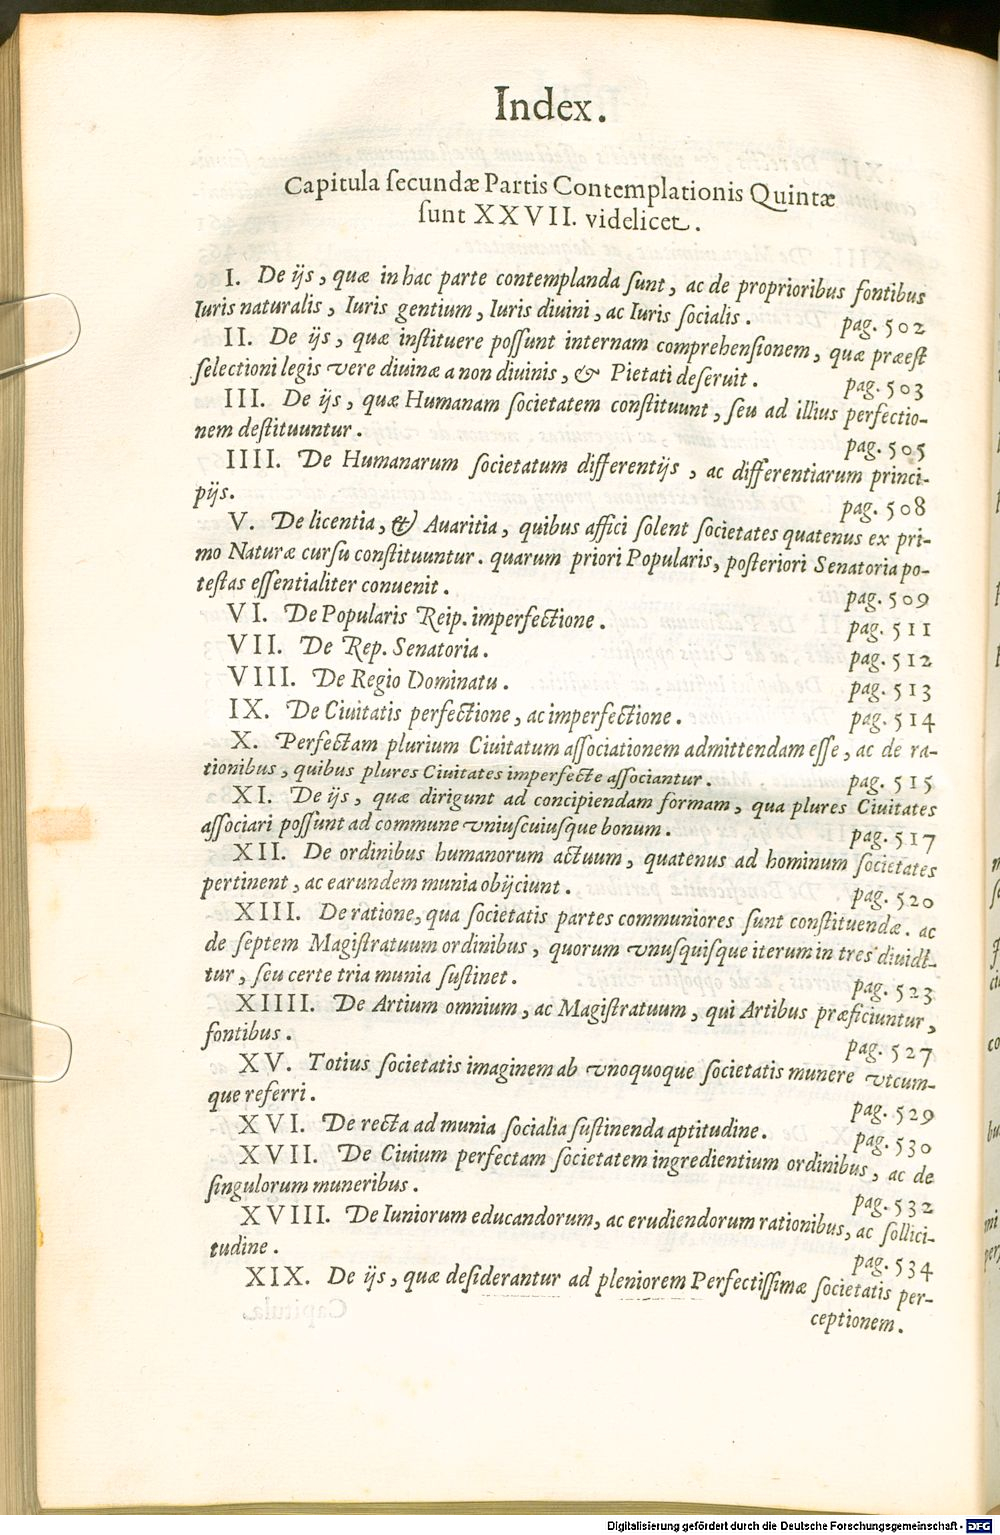 Index.
Capitula secundæ Partis Contemplationis Quintæ
sunt XXVII. videlicet.
I. De ijs, quæ in hac parte contemplanda sunt, ac de proprioribus fontibus
Iuris naturalis, Iuris gentium, Iuris diuini, ac Iuris socialis. pag. 502
II. De ijs, quæ instituere possunt internam comprehensionem, quæ præest
selectioni legis vere diuinæ a non diuinis, & Pietati deseruit. pag. 503
III. De ijs, quæ Humanam societatem constituunt, seu ad illius perfectio-
nem destituuntur. pag. 505
IIII. De Humanarum societatum differentijs, ac differentiarum princi-
pijs. pag. 508
V. De licentia, & Auaritia, quibus affici solent societates quatenus ex pri-
mo Naturæ cursu constituuntur. quarum priori Popularis, posteriori Senatoria po-
testas essentialiter conuenit. pag. 509
VI. De Popularis Reip. imperfectione. pag. 511
VII. De Rep. Senatoria. pag. 512
VIII. De Regio Dominatu. pag. 513
IX. De Ciuitatis perfectione, ac imperfectione. pag. 514
X. Perfectam plurium Ciuitatum associationem admittendam esse, ac de ra-
tionibus, quibus plures Ciuitates imperfecte associantur. pag. 515
XI. De ijs, quæ dirigunt ad concipiendam formam, qua plures Ciuitates
associari possunt ad commune vniuscuiusque bonum. pag. 517
XII. De ordinibus humanorum actuum, quatenus ad hominum societates
pertinent, ac earundem munia obijciunt. pag. 520
XIII. De ratione, qua societatis partes communiores sunt constituendæ. ac
de septem Magistratuum ordinibus, quorum vnusquisque iterum in tres diuidi-
tur, seu certe tria munia sustinet. pag. 523
XIIII. De Artium omnium, ac Magistratuum, qui Artibus præficiuntur,
fontibus. pag. 527
XV. Totius societatis imaginem ab vnoquoque societatis munere vtcum-
que referri. pag. 529
XVI. De recta ad munia socialia sustinenda aptitudine. pag. 530
XVII. De Ciuium perfectam societatem ingredientium ordinibus, ac de
singulorum muneribus. pag. 532
XVIII. De Iuniorum educandorum, ac erudiendorum rationibus, ac sollici-
tudine. pag. 534
XIX. De ijs, quæ desiderantur ad pleniorem Perfectissimæ societatis per-
ceptionem.
Digitalisierung gefördert durch die Deutsche Forschungsgemeinschaft - DFG